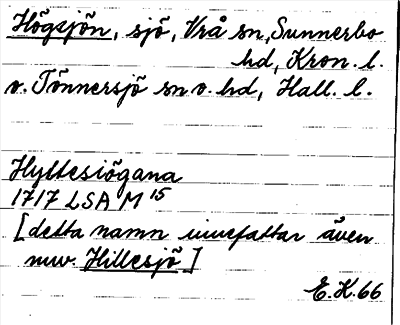 Högsjön, sjö, Vrå sn, Sunnerbo
hd, Kron. l.
o. Tönnersjö sn o. hd, Hall. l.
Hyltesiögana
1717 LSA M 15
[detta namn innefattar även
nuv. Hillesjö]
E.K. 66